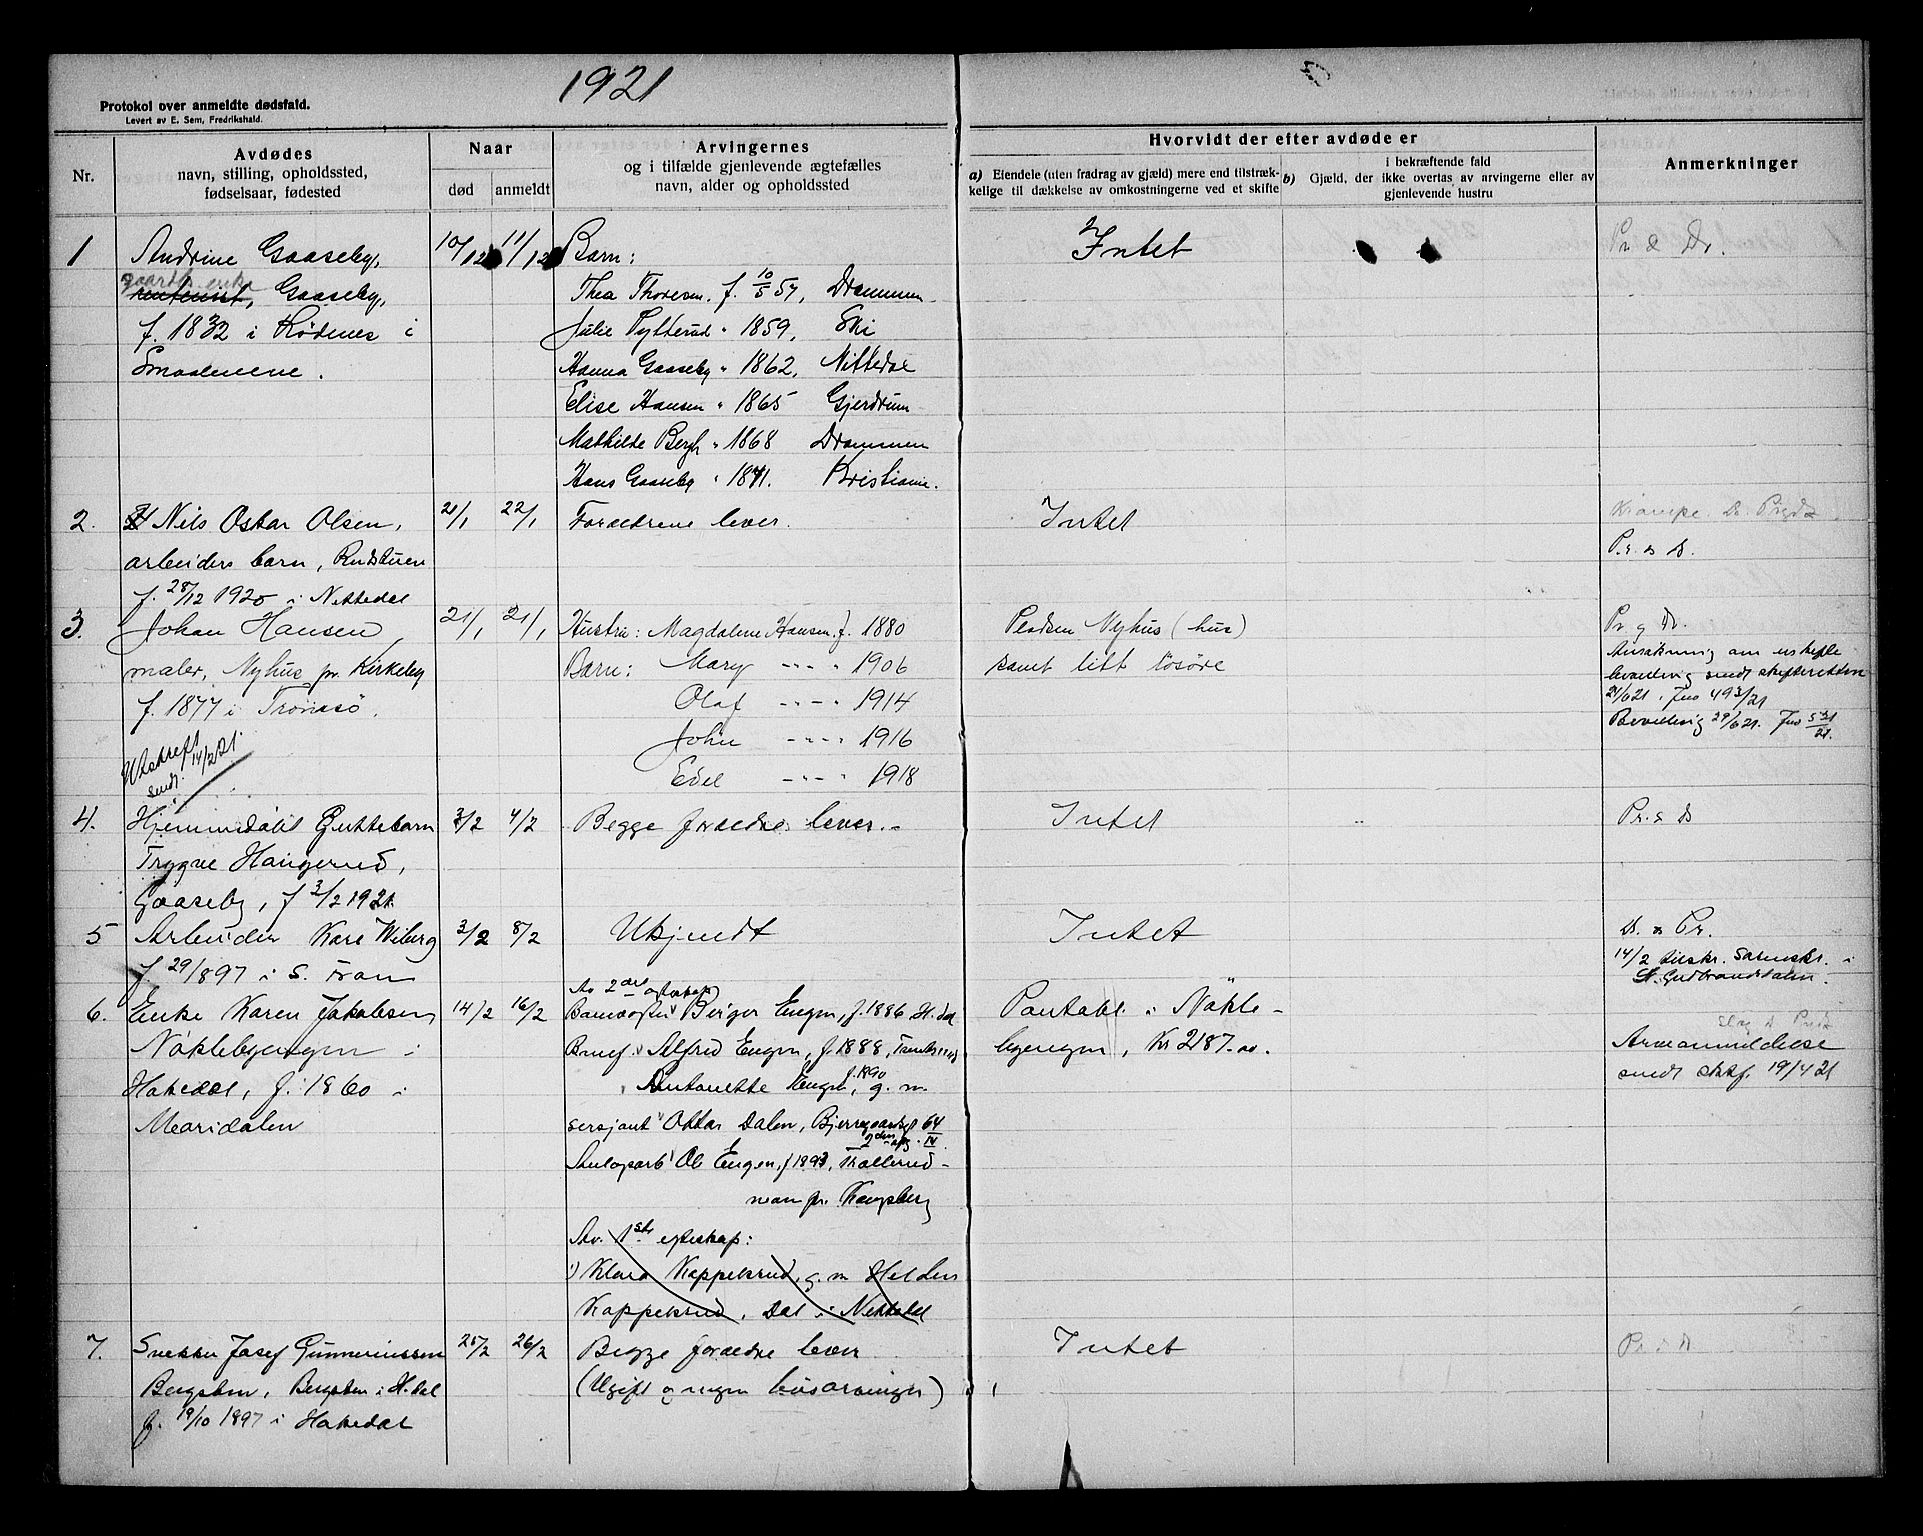 1921
Protokol over anmeldte dødsfald.
Levert av E. Sem, Fredrikshald.
Nr.
Avdødes
navn, stilling, opholdssted,
fødselsaar, fødested
Naar
død
anmeldt
Arvingernes
og i tilfælde gjenlevende ægtefælles
navn, alder og opholdssted
Hvorvidt der efter avdøde er
a) Eiendele (uten fradrag av gjæld) mere end tilstræk-
kelige til dækkelse av omkostningerne ved et skifte
i bekræftende fald
b) Gjæld, der ikke overtas av arvingerne eller av
gjenlevende hustru
Anmerkninger
1
Andrine Gaaseby,
gaardb. enke
rentenist, Gaaseby,
f. 1832 i Rødenes i
Smaalenene.
10/12 11/12
Barn:
Thea Thoresen. f. 10/5 57, Drammen.
Julie Tytterud " 1859, Ski
Hanna Gaaseby " 1862, Nittedal
Elise Hansen " 1865 Gjerdrum
Mathilde Bergh " 1868 Drammen
Hans Gaaseby " 1871. Kristiania.
Intet " "
Pr & Dr.
2.
Nils Oskar Olsen,
arbeiders barn, Rudstuen
f. 28/12 1920 i Nittedal
21/1 22/1
Forældrene lever.
Intet
Pr. & D.
3.
Johan Hansen,
maler, Nyhus pr. Kirkeby
f. 1877 i Tromsø.
Utskrift
sendt: 14/2 21.
21/1 21/1
Hustru: Magdalene Hansen f. 1880
Barn: Mary " " " 1906
Olaf " " " 1914
John " " " 1916
Edel " " " 1918
Pladsen Nyhus (hus)
samt litt løsøre
Pr. g Dr.
Ansøkning om uskifte
bevilling sendt skifteretten
21/6 21. Jno 493/21
Bevilling 29/6 21. Jno 521/21.
4.
Hjemmedøbt Guttebarn
Trygve Haugerud,
Gaaseby, f 3/2 1921
3/2 4/2
Begge forældre lever.-
Intet "
Pr. & D
5
Arbeider Kare Wiberg
f. 29/897 i S. Fron
3/2 8/2
Ukjendt
Intet
D. & Pr.
14/2 tilskr. sorenskr. i
S. Gudbrandsdalen.
6.
Enke Karen Jakobsen
Nøklebyengen i
Hakedal, f. 1860 i
Maridalen
14/2 16/2
Av 2det egteskap
Banevogter Birger Engen, f. 1886 H.dal
Alfred Engen, f. 1888,
Antonette Engen, f. 1890 g. m.
sersjant Ottar Dalen, Bjerregaardsgt 64/IV
Ole Engen, f 1893,
moen pr. Kongsberg
Av. 1ste egteskap:
1) Klara Kappelsrud, g. m Halden
Kappelsrud, Dal i Nittedal
Pantobl. i Nøkle-
byengen, Kr 2187.00.
Arveanmeldelse
sendt skf. 19/4 21
7.
Snekker Josef Gunneriussen
Bergsten, Bergsten i H.dal
f. 19/10 1897 i Hakedal
25/2 26/2
Begge forældre lever
(Ugift og ingen livsarvinger)
Intet
Pr & D